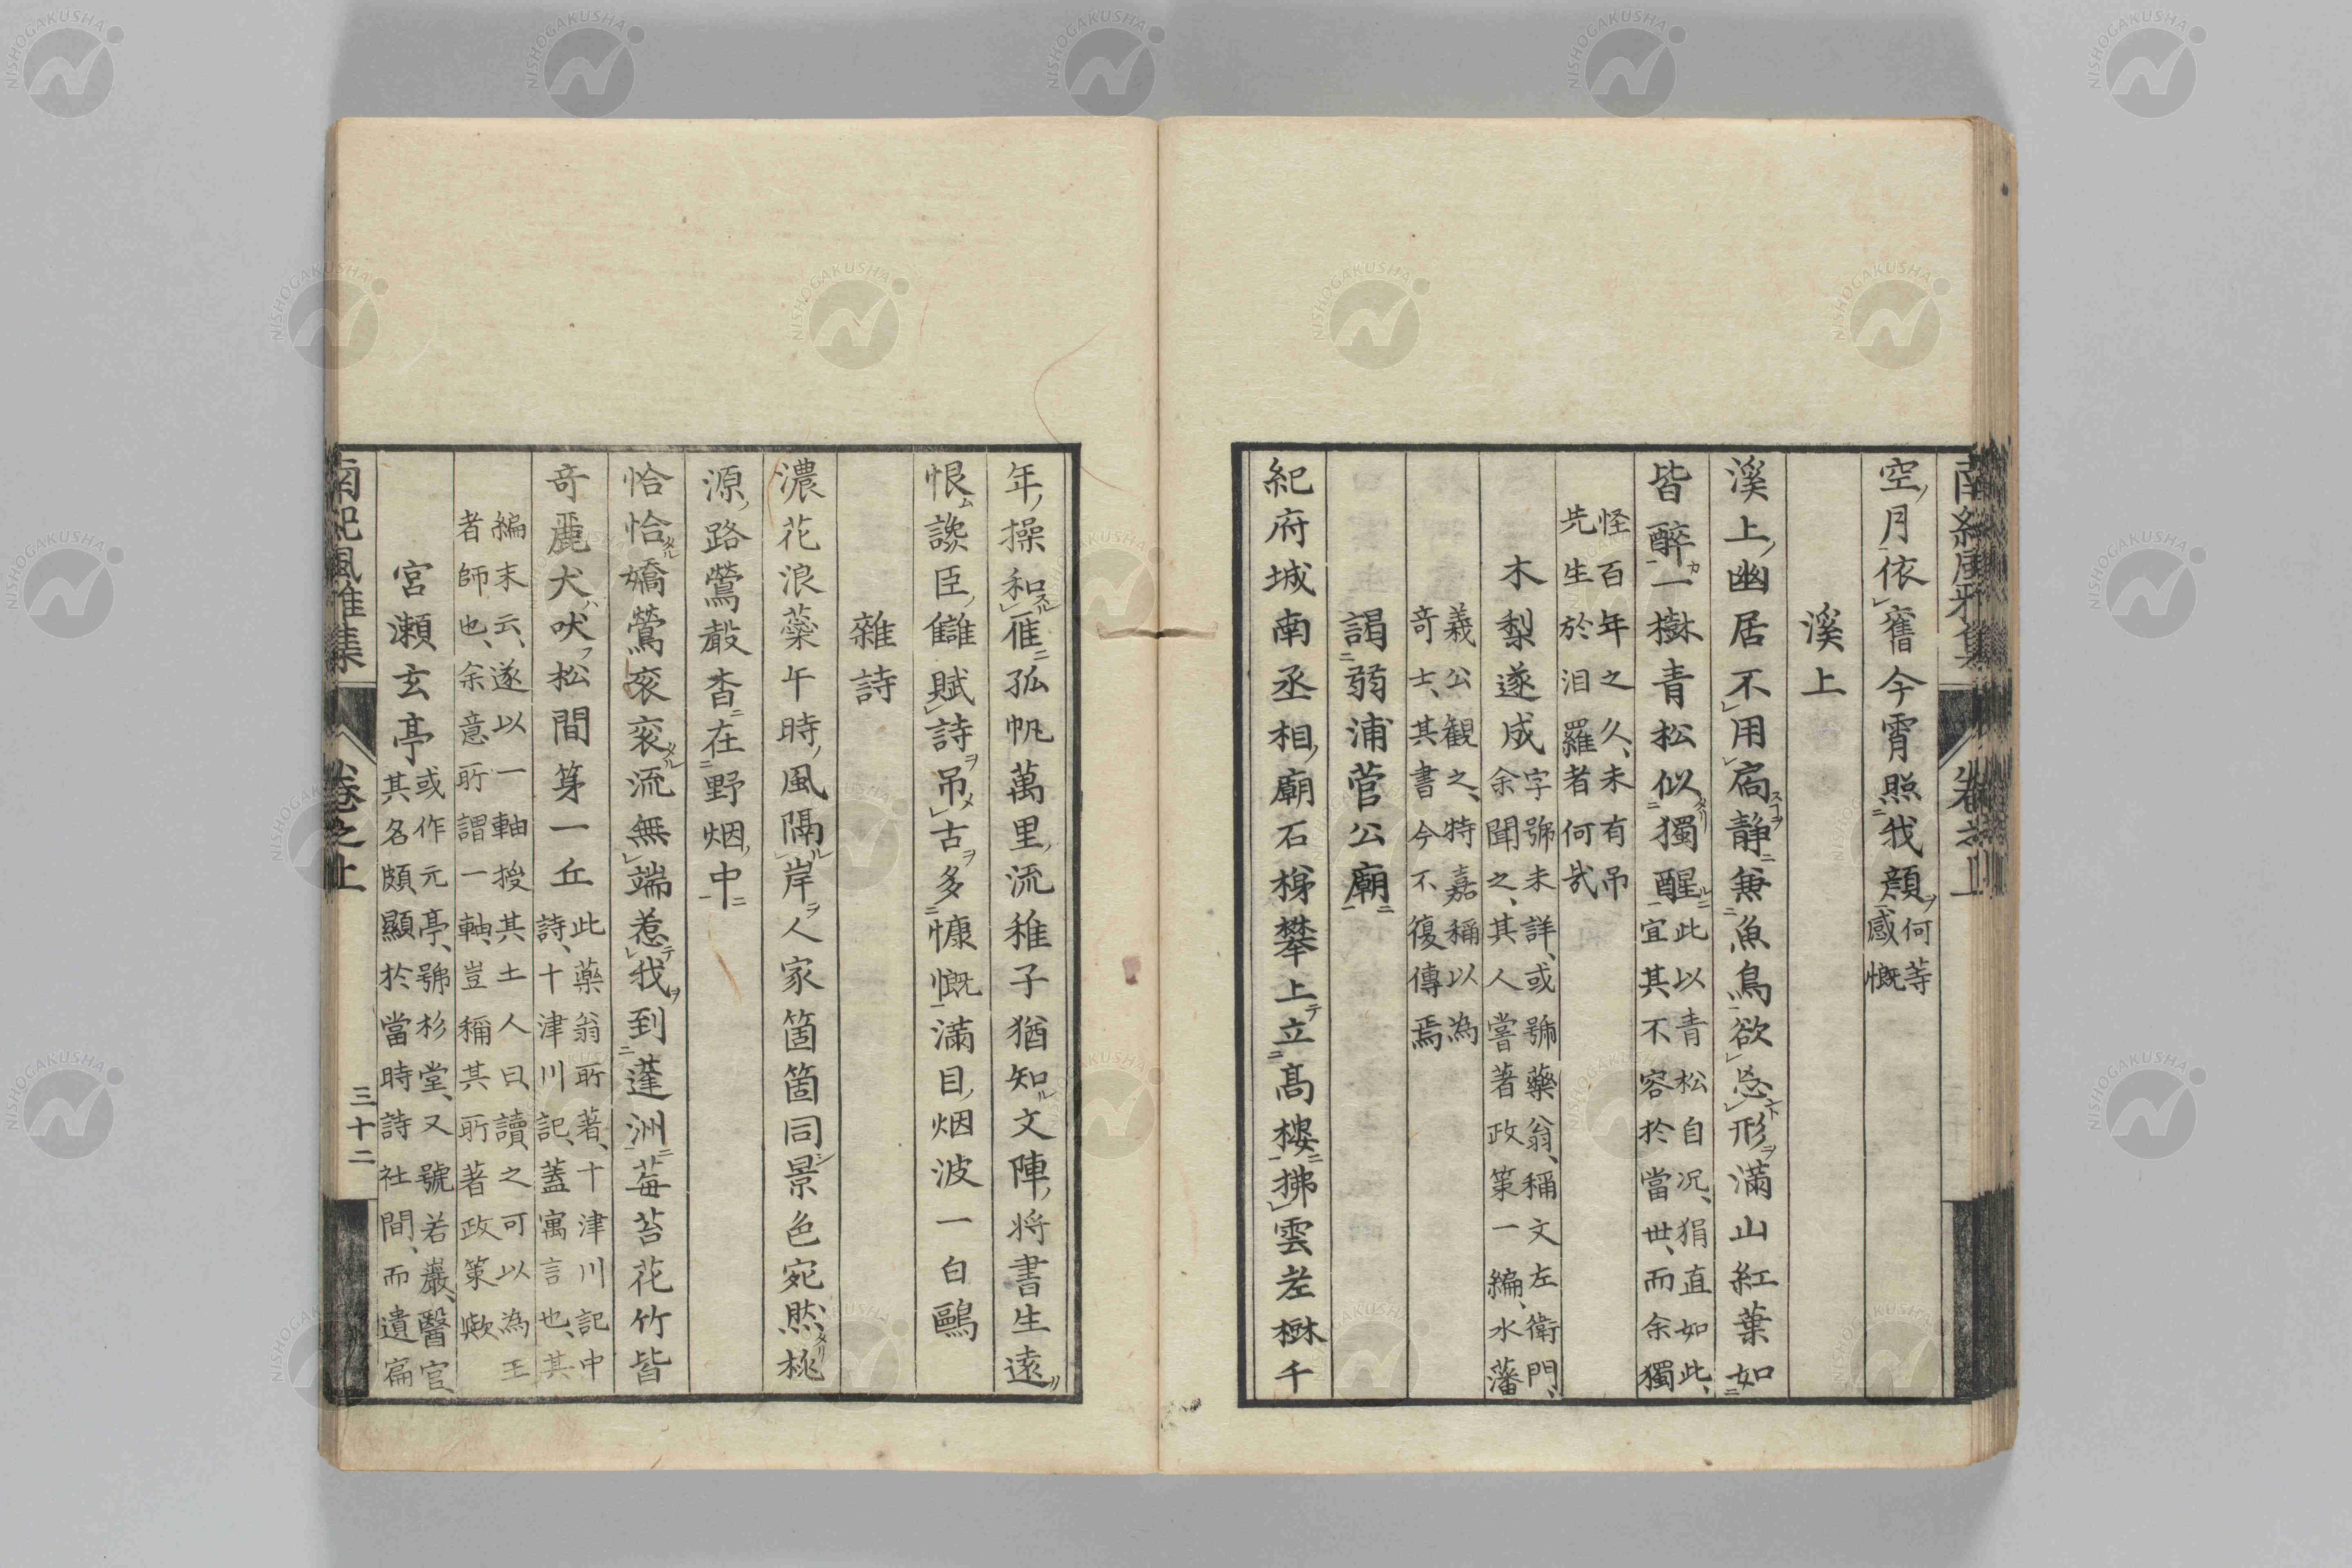 空月依舊今霄照我顔何等
感慨
溪上
溪上幽居不用扃靜兼魚鳥欲忘形滿山紅葉如
皆醉一樹青松似獨醒此以青松自況狷直如此、
宜其不容於當世、而余獨
怪百年之久、未有吊
先生於汨羅者何哉
木梨遂成字號未詳、或號藥翁、稱文左衛門、
余聞之、其人嘗著政策一編、水藩
義公觀之、特嘉稱以為
奇士、其書今不復傳焉
謁弱浦菅公廟
紀府城南丞相廟石梯攀上立高樓拂雲老樹千
年操和雁孤帆萬里流稚子猶知文陣將書生遠
恨讒臣讎賦詩吊古多慷慨滿目烟波一白鷗
雜詩
濃花浪蘂午時風隔岸人家箇箇同景色宛然桃
源路鶯聲杳在野烟中
恰恰嬌鶯衮衮流無端惹我到蓬洲莓苔花竹皆
奇麗犬吠松間第一丘此藥翁所著、十津川記中
詩、十津川記、蓋寓言也、其
編末云、遂以一軸授其土人曰、讀之可以為王
者師也、余意所謂一軸、豈稱其所著政策歟
宮瀨玄亭或作元亭、號杉堂、又號若巖、醫官
其名頗顯於當時詩社間、而遺篇
南紀風雅集
卷之上
三十二